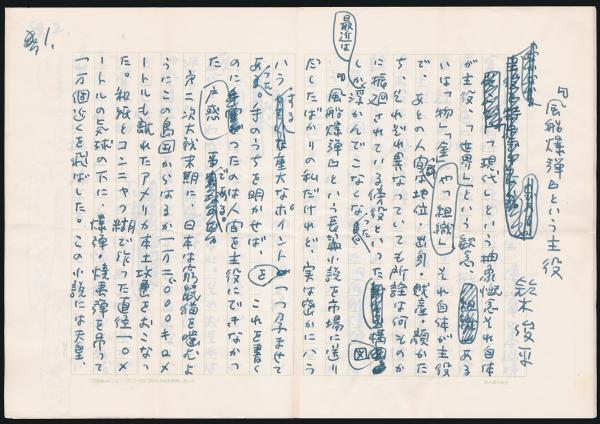 No.1.
『風船爆弾』という主役
鈴木俊平
「現代」という抽象概念それ自体
が主役、「世界」という観念、ある
いは「物」「金」や「組織」それ自体が主役
で、あとの人間は地位・出身・財産・顔かた
ち、それぞれ異なっていても所詮は何ものか
に振廻されている傍役といった図
最近はしか浮かんでこなくなった。
『風船爆弾』という長篇小説を市場に送り
だしたばかりの私だけれど、実は密かにハラ
ハラする重大なポイントを一つ孕ませて
あった。手のうちを明かせば、これを書く
のに戸惑ったのは人間を主役にできなかっ
た
である。
第二次大戦末期に、日本は窮鼠猫を噛むよ
うにこの島国からはるか一万二〇〇〇キロメ
ートルも離れたアメリカ本土攻撃をおこなっ
た。和紙とコンニャク糊で作った直径一〇メ
ートルの気球の下に、爆弾・焼夷弾を吊って
一万個近くを飛ばした。この小説には天皇、